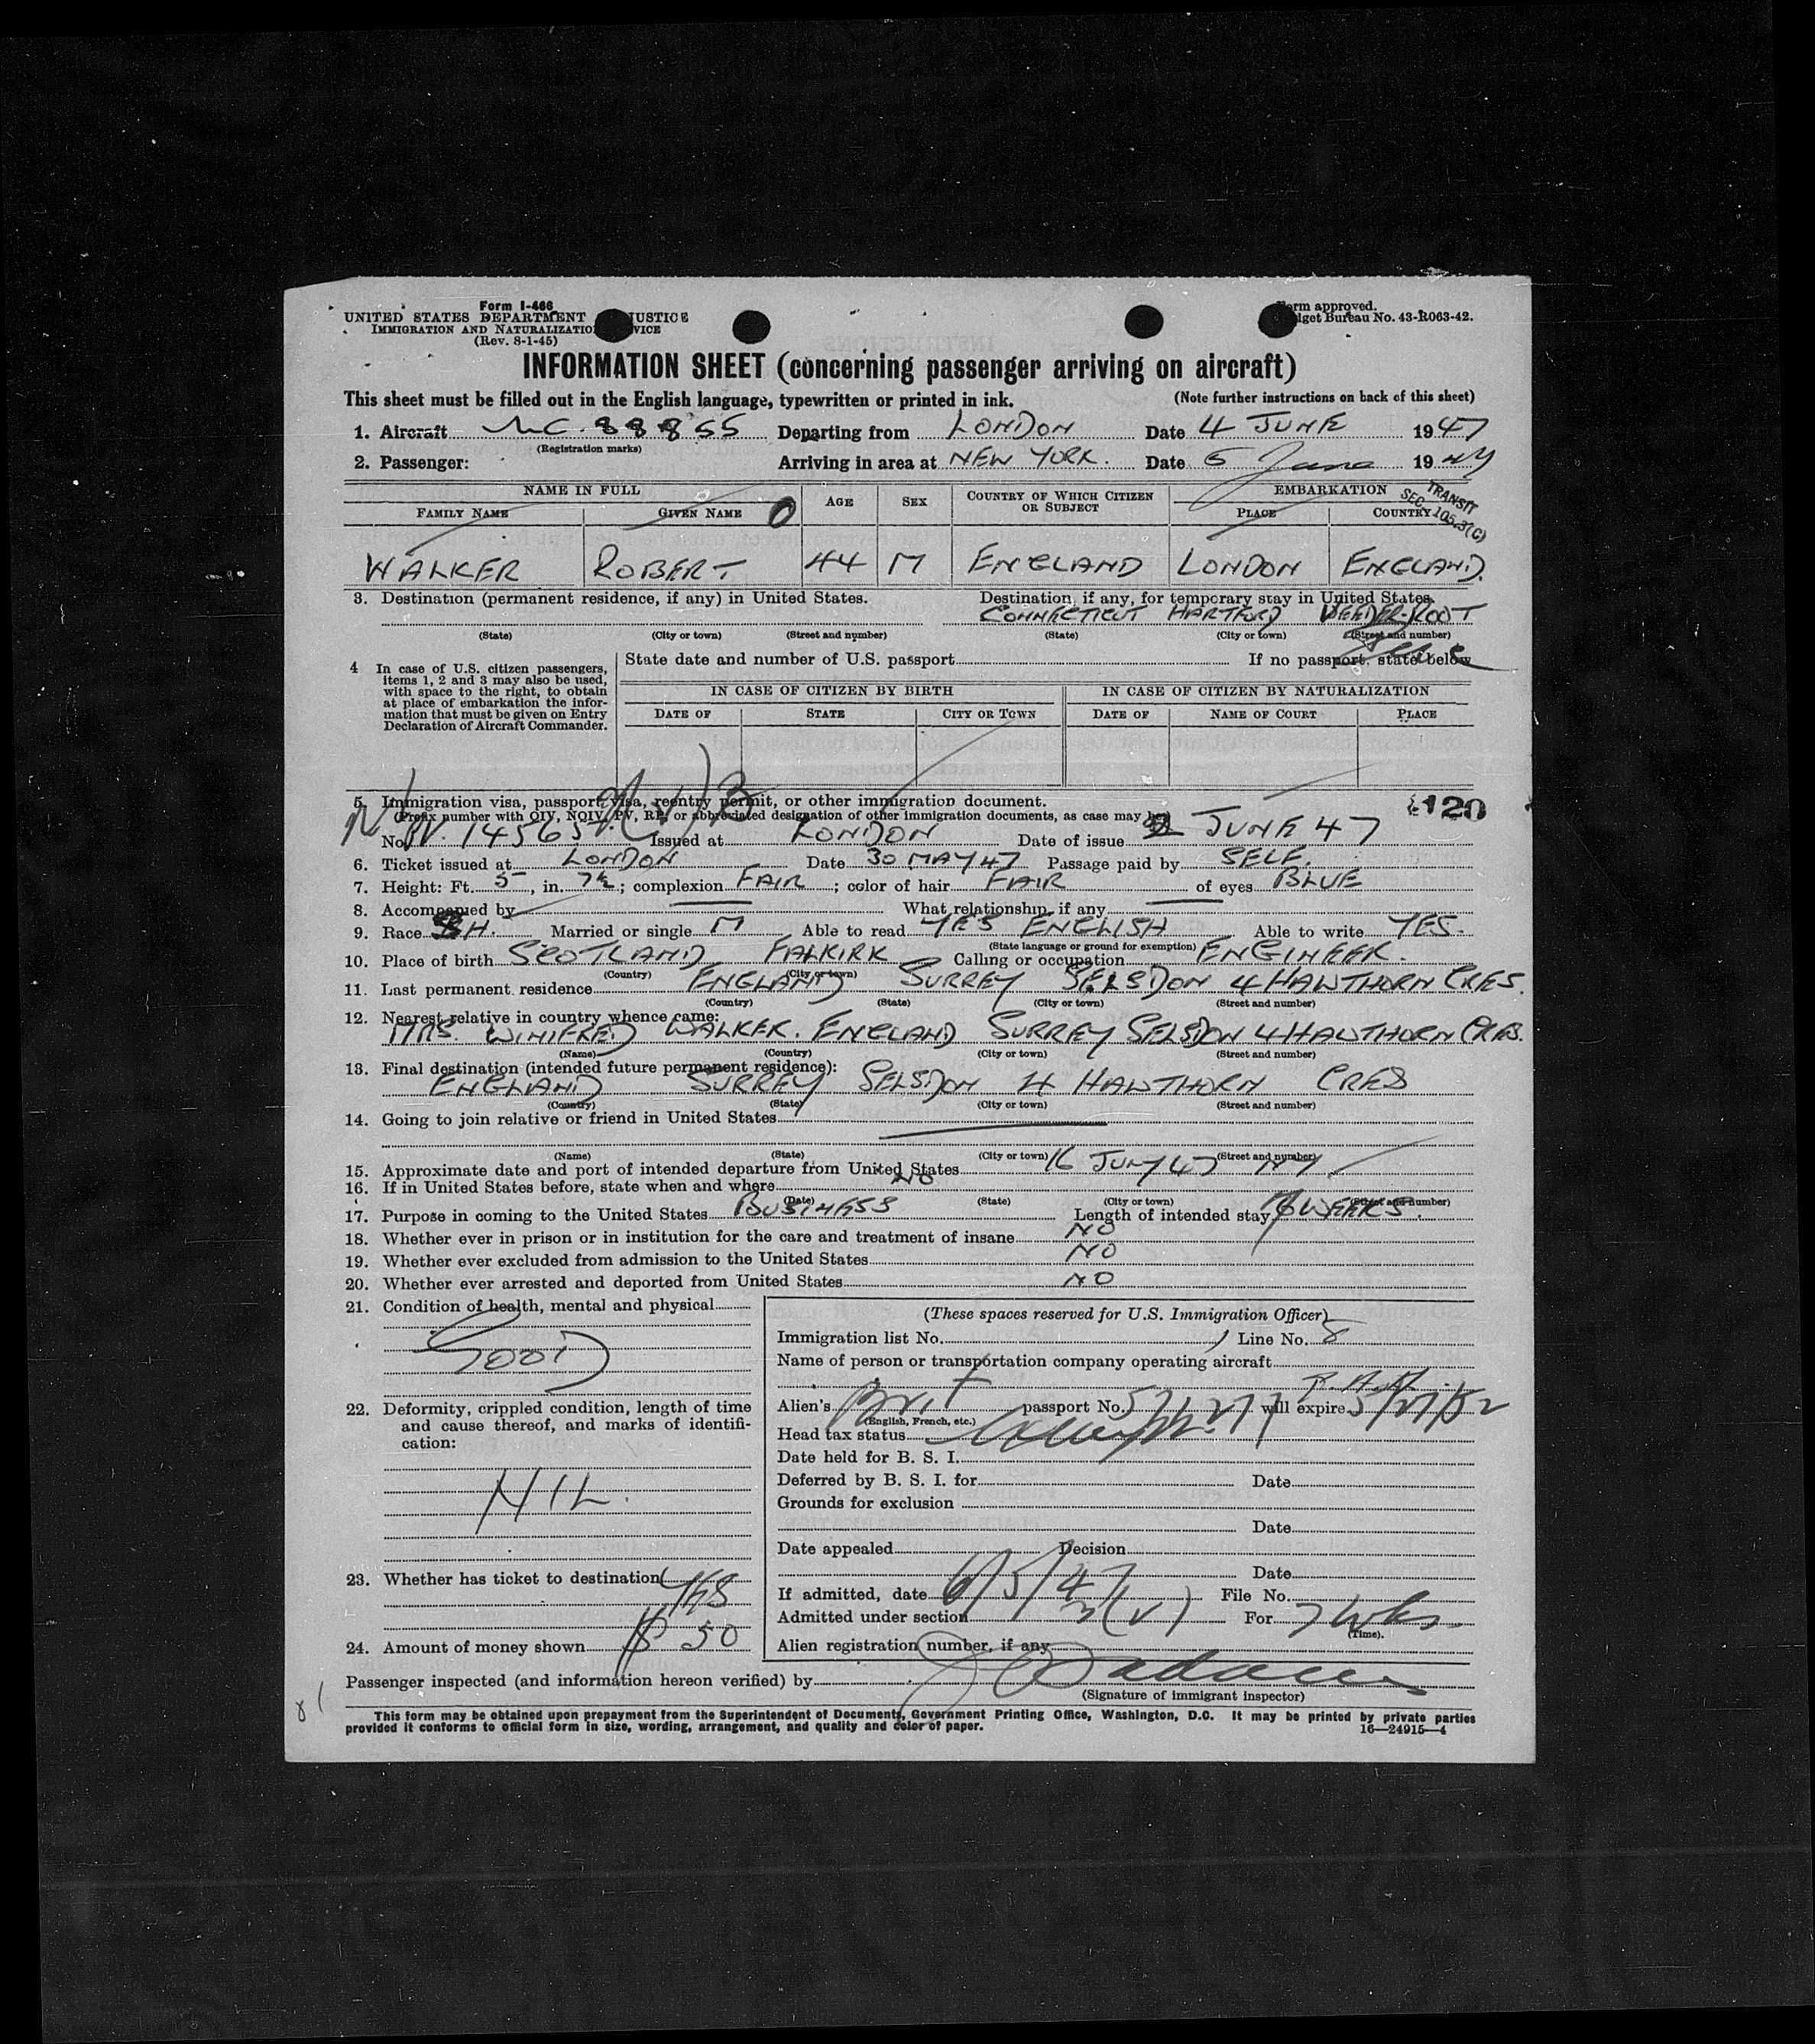 Form I-466
UNITED STATES DEPARTMENT JUSTICE
IMMIGRATION AND NATURALIZATIO VICE
(Rev. 8-1-45)
rm approved.
get Bureau No. 43-R063-42.
INFORMATION SHEET (concerning passenger arriving on aircraft)
This sheet must be filled out in the English language, typewritten or printed in ink. (Note further instructions on back of this sheet)
1. Aircraft NC. 88855 Departing from LONDON Date 4 JUNE 1947
(Registration marks)
2. Passenger: Arriving in area at NEW YORK. Date 5 June 1947
NAME IN FULL AGE SEX COUNTRY OF WHICH CITIZEN OR SUBJECT EMBARKATION
FAMILY NAME GIVEN NAME PLACE COUNTRY
TRANSIT
SEC. 105.3(C)
WALKER ROBERT 44 M ENGLAND LONDON ENGLAND.
3. Destination (permanent residence, if any) in United States. Destination, if any, for temporary stay in United States.
CONNECTICUT HARTFORD VEEDER-ROOT
(State) (City or town) (Street and number) (State) (City or town) (Street and number)
4 In case of U.S. citizen passengers, items 1, 2 and 3 may also be used, with space to the right, to obtain at place of embarkation the information that must be given on Entry Declaration of Aircraft Commander.
State date and number of U.S. passport If no passport, state below
IN CASE OF CITIZEN BY BIRTH IN CASE OF CITIZEN BY NATURALIZATION
DATE OF STATE CITY OR TOWN DATE OF NAME OF COURT PLACE
5. Immigration visa, passport visa, reentry permit, or other immigration document.
(Prefix number with QIV, NQIV, PV, RP, or abbreviated designation of other immigration documents, as case may be) 120
No. 14565 Issued at LONDON Date of issue 2 JUNE 47
6. Ticket issued at LONDON Date 30 MAY 47 Passage paid by SELF.
7. Height: Ft. 5, in. 7½; complexion FAIR; color of hair FAIR of eyes BLUE
8. Accompanied by What relationship, if any
9. Race SH. Married or single M Able to read YES ENGLISH Able to write YES.
(State language or ground for exemption)
10. Place of birth SCOTLAND FALKIRK Calling or occupation ENGINEER.
(Country) (City or town)
11. Last permanent residence ENGLAND SURREY SELSDON 4 HAWTHORN CRES.
(Country) (State) (City or town) (Street and number)
12. Nearest relative in country whence came:
MRS. WINIFRED WALKER. ENGLAND SURREY SELSDON 4 HAWTHORN CRES.
(Name) (Country) (City or town) (Street and number)
13. Final destination (intended future permanent residence):
ENGLAND SURREY SELSDON 4 HAWTHORN CRES
(Country) (State) (City or town) (Street and number)
14. Going to join relative or friend in United States
(Name) (State) (City or town) (Street and number)
15. Approximate date and port of intended departure from United States 16 JULY 47 NY.
16. If in United States before, state when and where NO
(Date) (State) (City or town) (Street and number)
17. Purpose in coming to the United States BUSINESS Length of intended stay 6 WEEKS.
18. Whether ever in prison or in institution for the care and treatment of insane NO
19. Whether ever excluded from admission to the United States NO
20. Whether ever arrested and deported from United States NO
21. Condition of health, mental and physical
GOOD
22. Deformity, crippled condition, length of time and cause thereof, and marks of identification:
NIL.
23. Whether has ticket to destination YES
24. Amount of money shown $ 50
(These spaces reserved for U.S. Immigration Officer)
Immigration list No. Line No. 8
Name of person or transportation company operating aircraft
P.A.A.
Alien's Brit passport No. will expire 5/27/52
(English, French, etc.)
Head tax status
Date held for B. S. I.
Deferred by B. S. I. for Date
Grounds for exclusion
Date
Date appealed Decision
Date
If admitted, date 6/5/47 File No.
Admitted under section 3(v) For 7 wks
(Time).
Alien registration number, if any
Passenger inspected (and information hereon verified) by
(Signature of immigrant inspector)
This form may be obtained upon prepayment from the Superintendent of Documents, Government Printing Office, Washington, D.C. It may be printed by private parties
provided it conforms to official form in size, wording, arrangement, and quality and color of paper. 16—24915—4